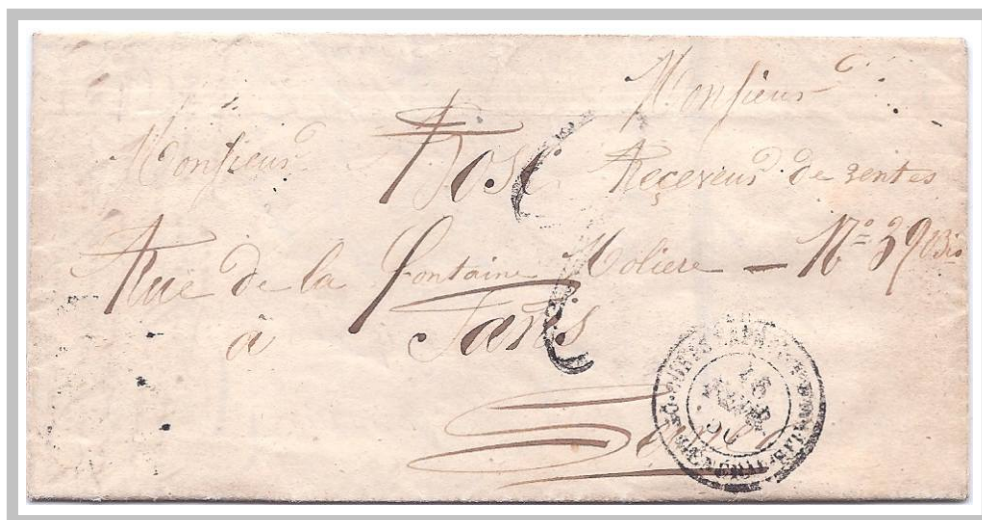 Monsieur
Monsieur Rose Receveur de rentes
Rue de la fontaine Moliere — N° 39 Bis
à Paris